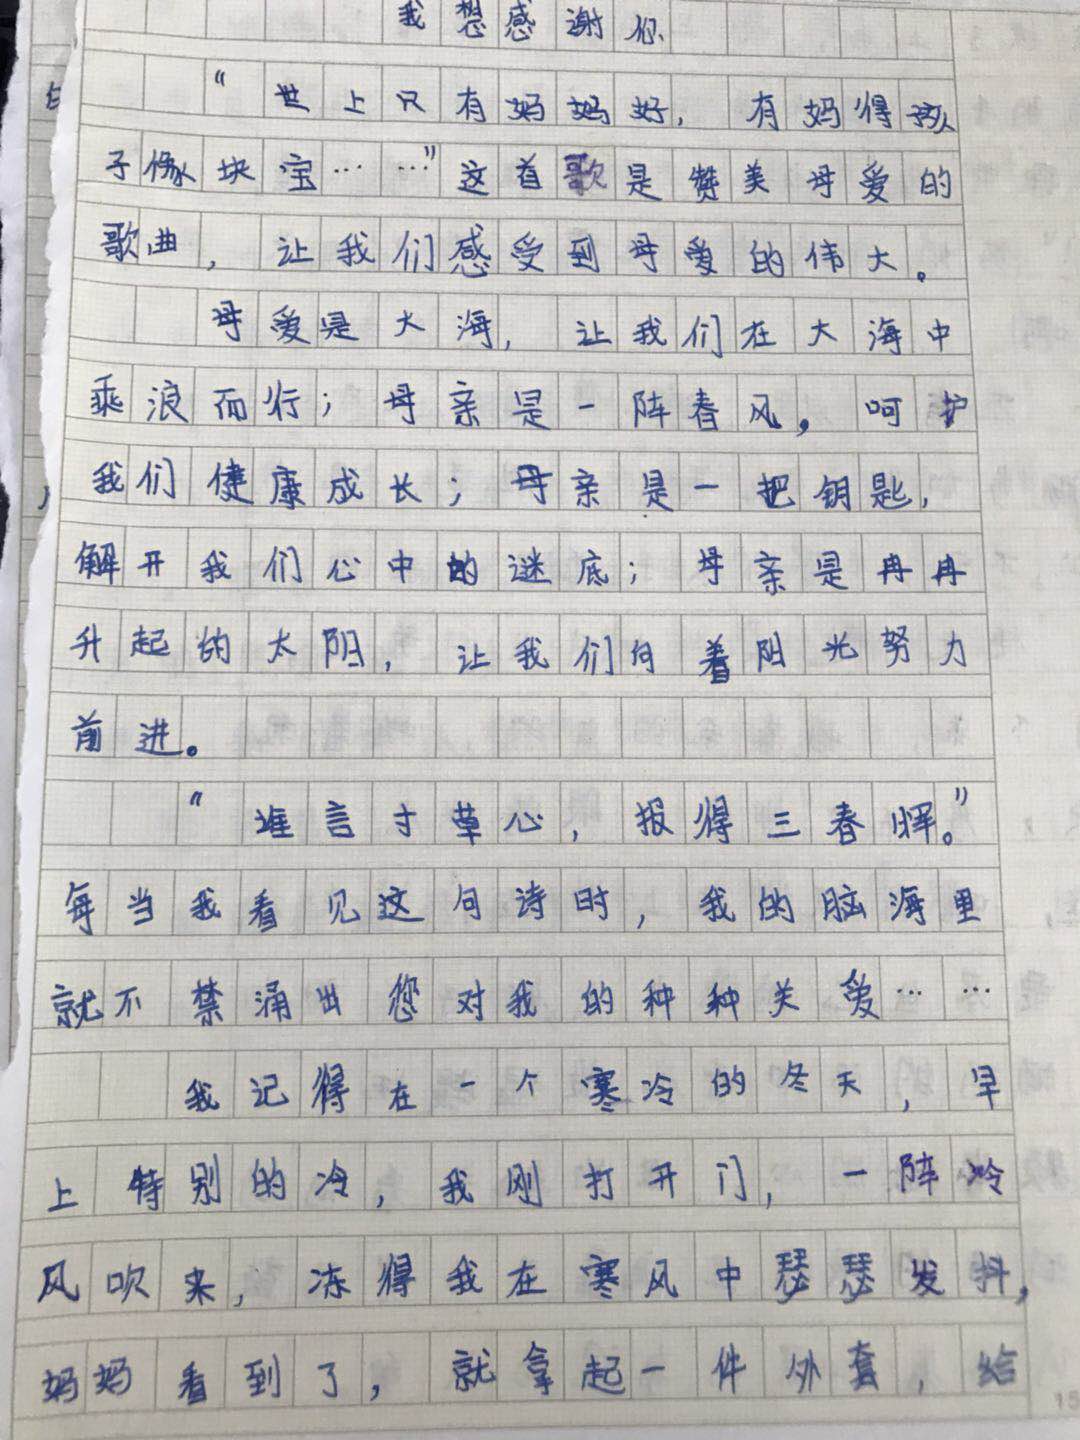 我想感谢你
“世上只有妈妈好，有妈得孩
子像块宝……”这首歌是赞美母爱的
歌曲，让我们感受到母爱的伟大。
母爱是大海，让我们在大海中
乘浪而行；母亲是一阵春风，呵护
我们健康成长；母亲是一把钥匙，
解开我们心中的谜底；母亲是冉冉
升起的太阳，让我们向着阳光努力
前进。
“谁言寸草心，报得三春晖。”
每当我看见这句诗时，我的脑海里
就不禁涌出您对我的种种关爱……
我记得在一个寒冷的冬天，早
上特别的冷，我刚打开门，一阵冷
风吹来，冻得我在寒风中瑟瑟发抖，
妈妈看到了，就拿起一件外套，给